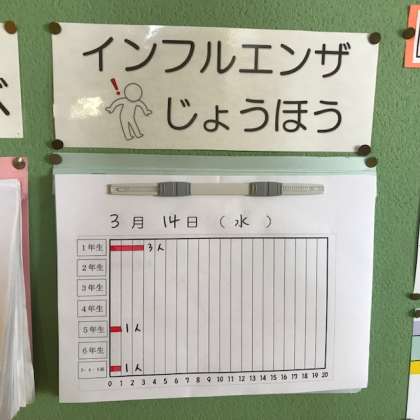 インフルエンザ
じょうほう
3月 14日 （水）
1年生 3人
2年生
3年生
4年生
5年生 1人
6年生
1人
0 1 2 3 4 5 6 7 8 9 10 11 12 13 14 15 16 17 18 19 20